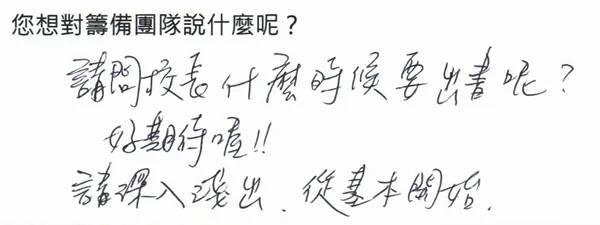 您想對籌備團隊說什麼呢？
請問校長什麼時候要出書呢？
好期待喔!!
請深入淺出、從基本開始.